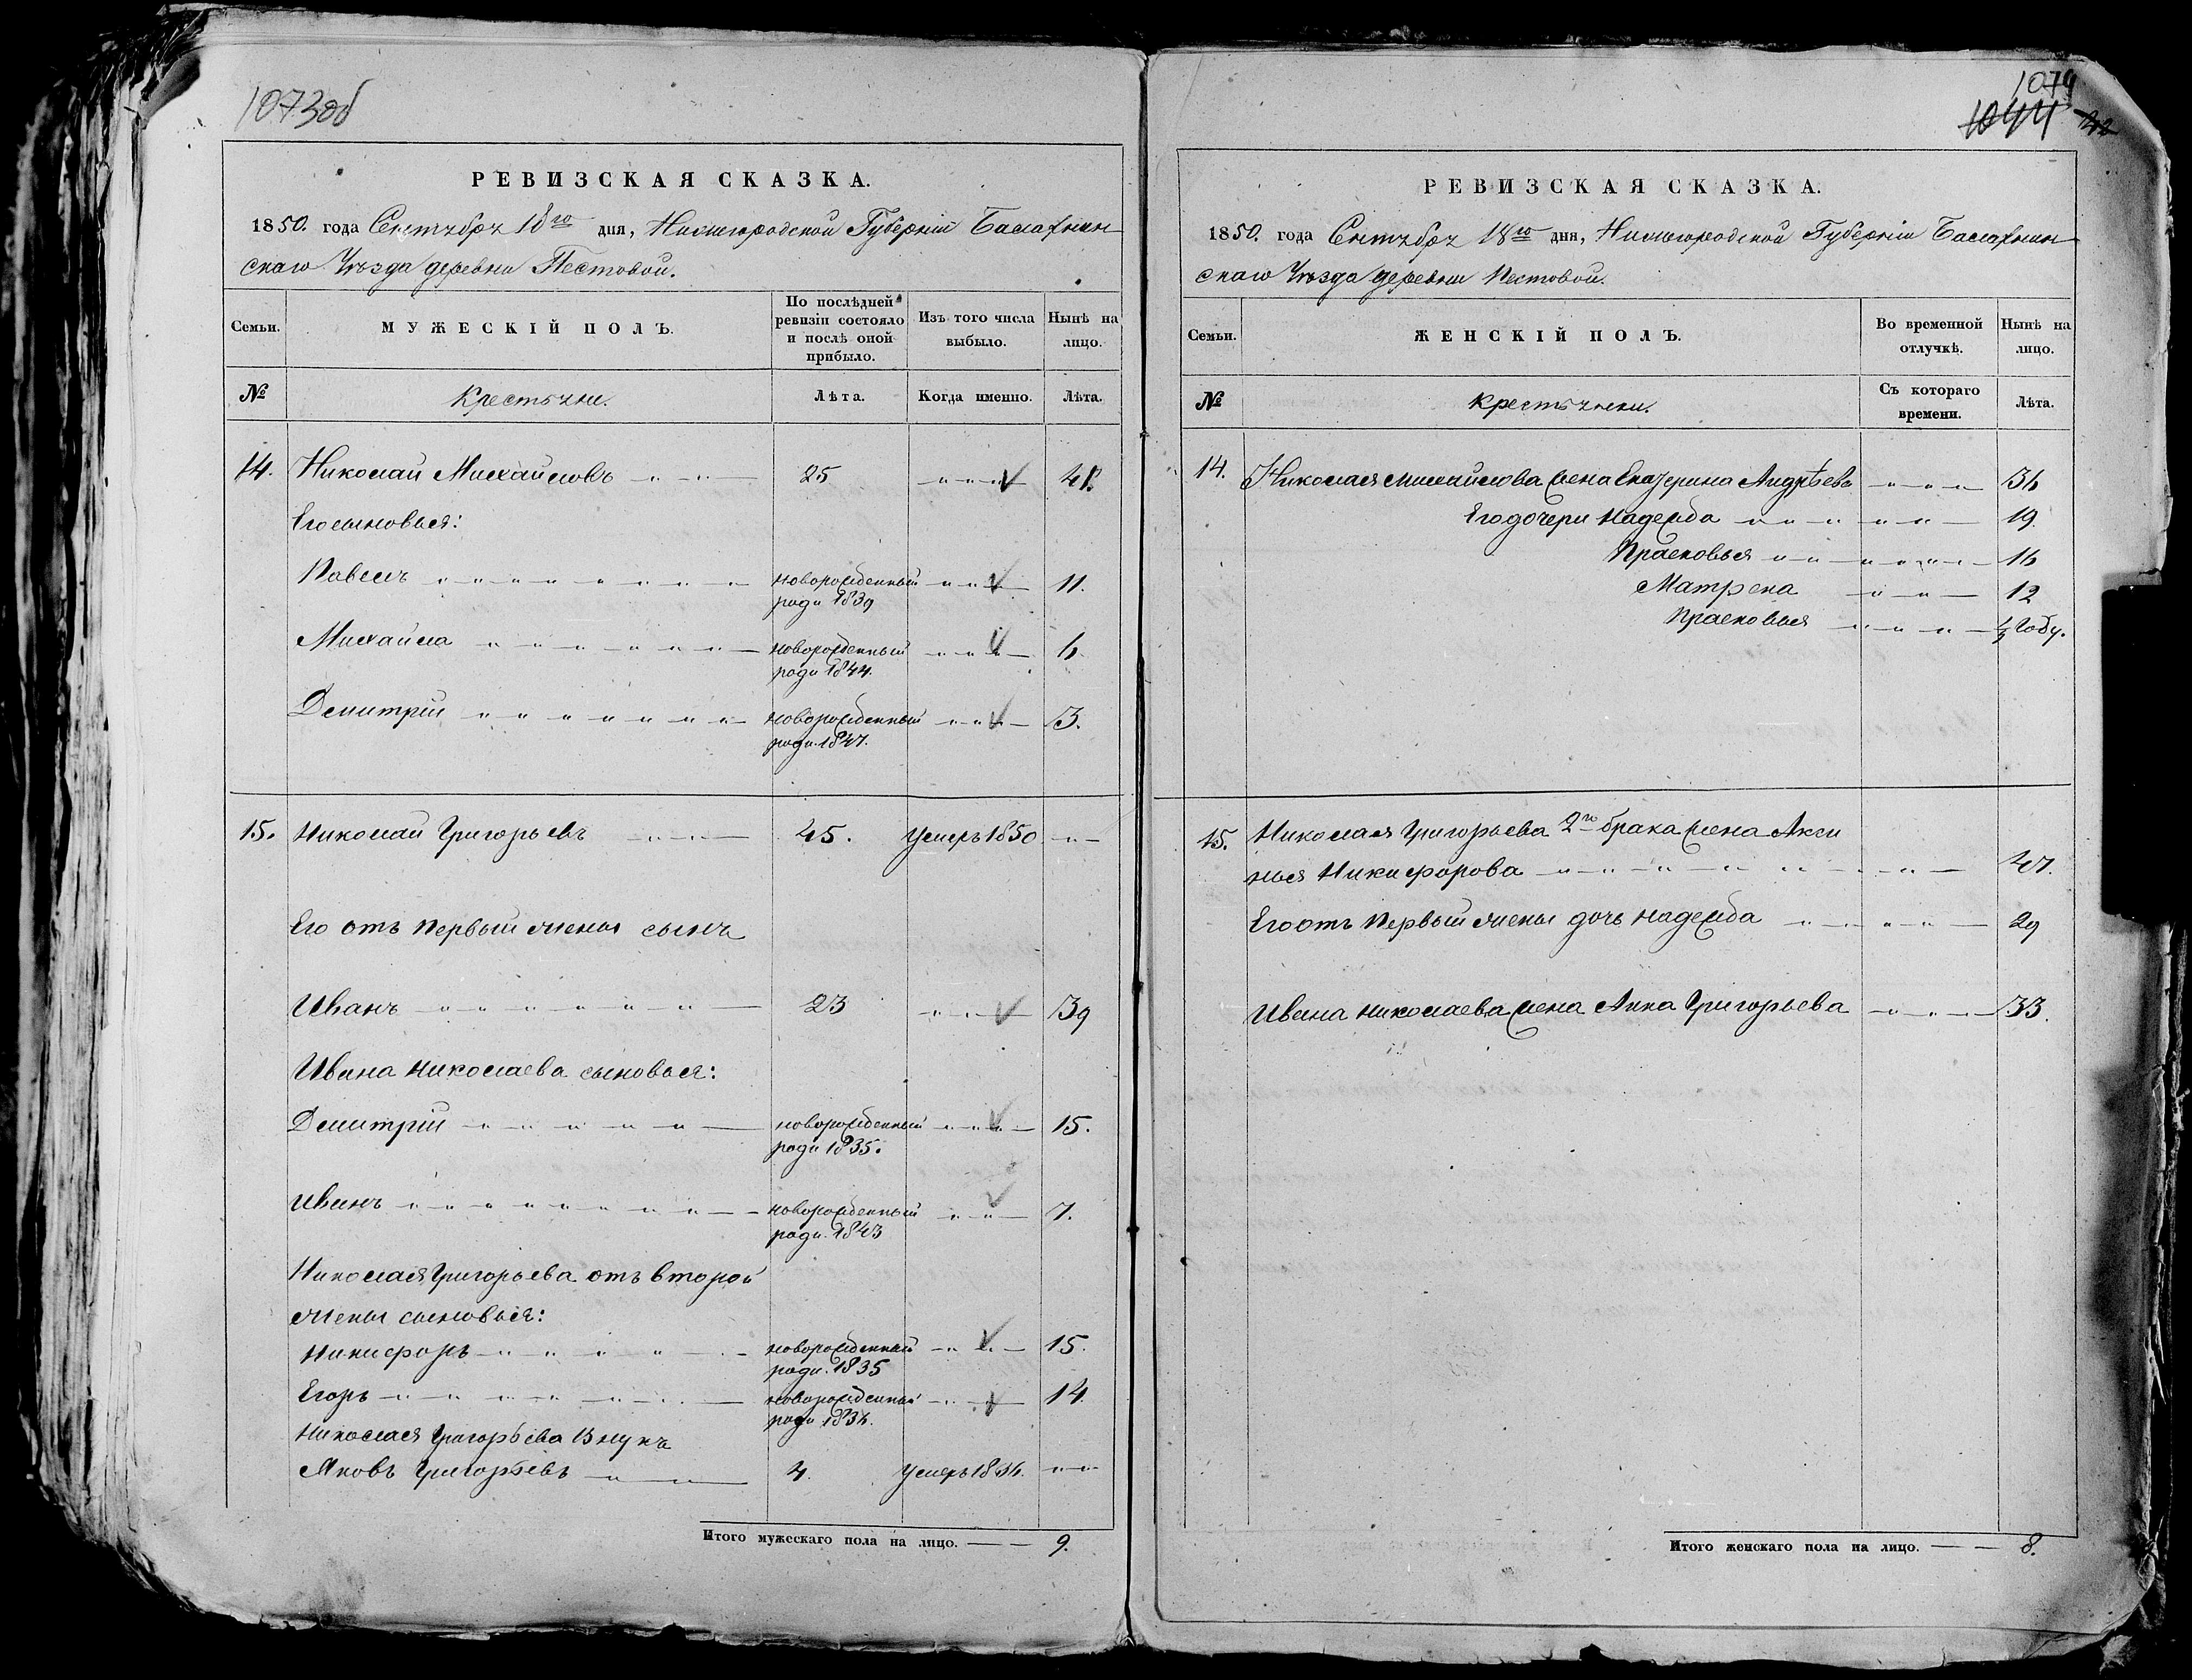 1073об
РЕВИЗСКАЯ СКАЗКА.
1850. года Сентября 18го дня, Нижегородской Губерніи Балахнин-
скаго Уѣзда деревни Пестовой.
Семьи. МУЖЕСКІЙ ПОЛЪ. По послѣдней ревизіи состояло и послѣ оной прибыло. Изъ того числа выбыло. Нынѣ на лицо.
№ Крестьяне. Лѣта. Когда именно. Лѣта.
14. Николай Михайловъ 25 41.
Его сыновья:
Павелъ новорожденный 11.
роди 1839
Михайла новорожденный 6
роди 1844.
Демитрій новорожденный 3.
роди. 1847.
15. Николай Григорьевъ 45. Умеръ 1850
Его отъ первый жены сынъ
Иванъ 23 39
Ивана Николаева сыновья:
Демитрій новорожденный 15.
роди 1835.
Иванъ новорожденный 7.
роди. 1843
Николая Григорьева отъ второй
жены сыновья:
Никифоръ новорожденный 15.
роди. 1835
Егоръ новорожденный 14.
роди 1836.
Николая Григорьева внукъ
Яковъ Григорьевъ 4. Умеръ 1836.
Итого мужескаго пола на лицо. 9.
1074
1044
42
РЕВИЗСКАЯ СКАЗКА.
1850. года Сентября 18го дня, Нижегородской Губерніи Балахнин-
скаго Уѣзда деревни Пестовой.
Семьи. ЖЕНСКІЙ ПОЛЪ. Во временной отлучкѣ. Нынѣ на лицо.
№ Крестьянки. Съ котораго времени. Лѣта.
14. Николая Михайлова жена Екатерина Андрѣева 36
Его дочери Надежда 19.
Прасковья 16
Матрена 12
Прасковья ½ году.
15. Николая Григорьева 2го брака жена Акси
нья Никифорова 47.
Его отъ первый жены дочь Надежда 29
Ивана Николаева жена Анна Григорьева 33.
Итого женскаго пола на лицо. 8.